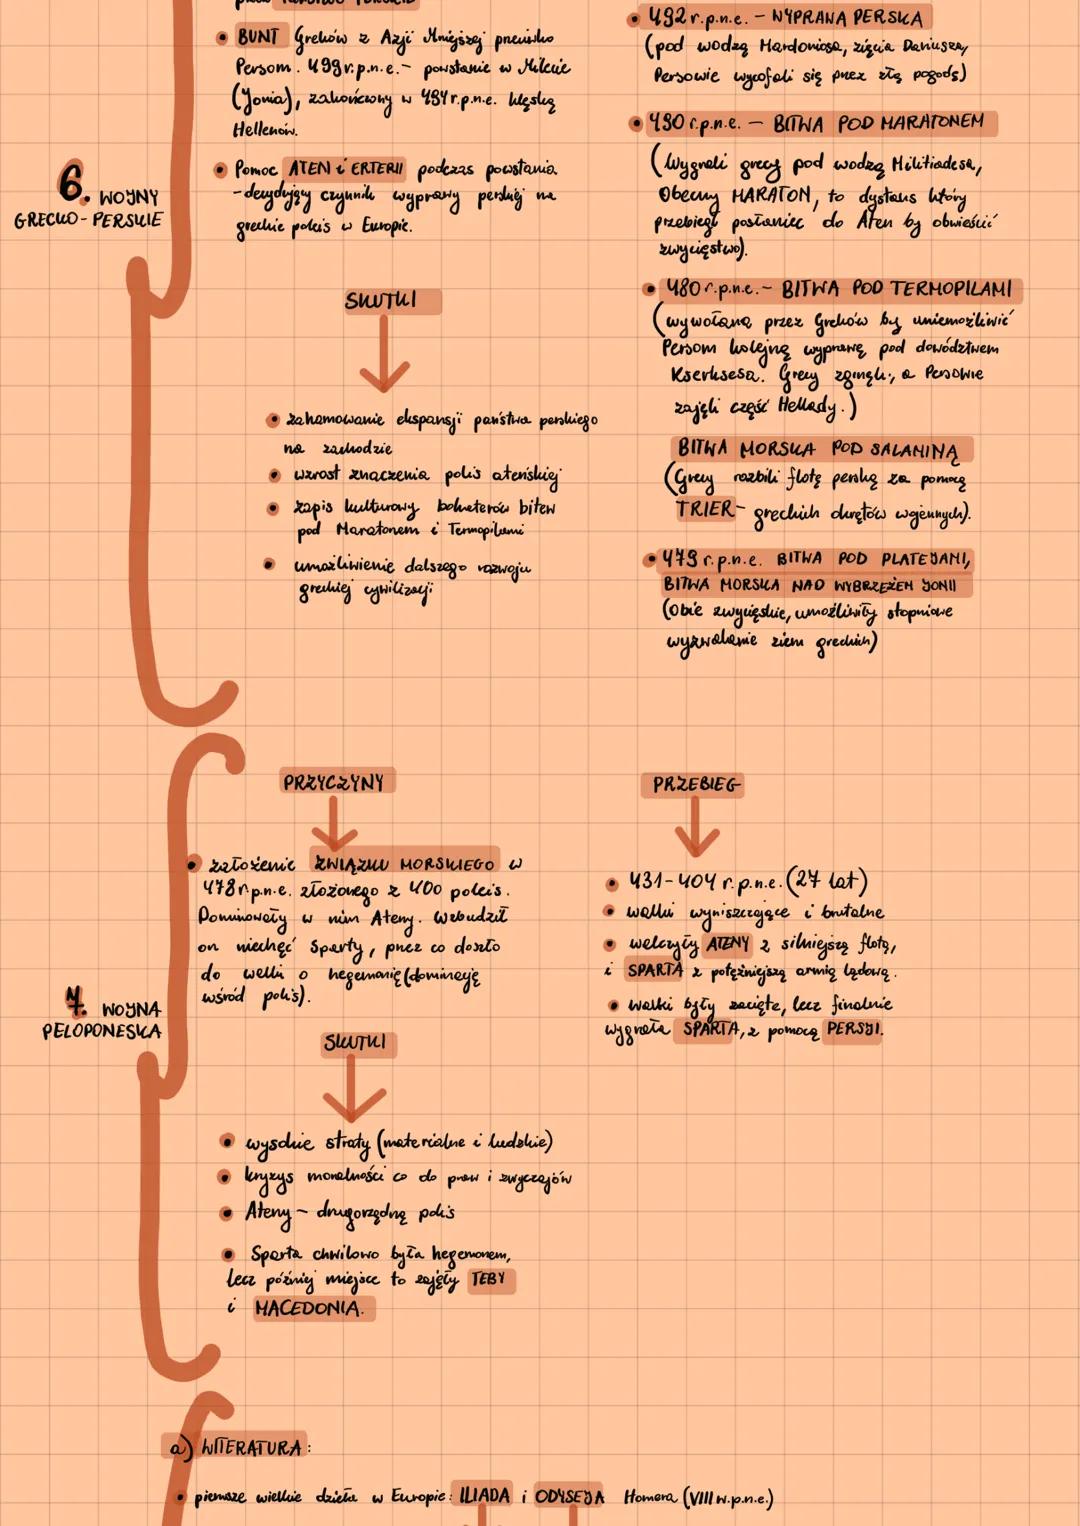 BUNT Greków z Azji Mniejszej przeciwko
Persom. 499 r.p.n.e. - powstanie w Milecie
(Jonia), zakończony w 494 r.p.n.e. klęską
Hellenów.
Pomoc ATEN i ERTERII podczas powstania
- decydujący czynnik wyprawy perskiej na
greckie poleis w Europie.
6. WOJNY
GRECKO-PERSKIE
SKUTKI
zahamowanie ekspansji państwa perskiego
na zachodzie
wzrost znaczenia polis ateńskiej
zapis kulturowy bohaterów bitew
pod Maratonem i Termopilami
umożliwienie dalszego rozwoju
greckiej cywilizacji
492 r.p.n.e. - WYPRAWA PERSKA
(pod wodzą Mardoniosa, zięcia Dariusza,
Persowie wycofali się przez złą pogodę)
490 r.p.n.e. - BITWA POD MARATONEM
(Wygrali grecy pod wodzą Militiadesa,
Obecny MARATON, to dystans który
przebiegł posłaniec do Aten by obwieścić
zwycięstwo).
480 r.p.n.e. - BITWA POD TERMOPILAMI
(wywołana przez Greków by uniemożliwić
Persom kolejną wyprawę pod dowództwem
Kserksesa. Grecy zginęli, a Persowie
zajęli część Hellady.)
BITWA MORSKA POD SALAMINĄ
(Grecy rozbili flotę perską za pomocą
TRIER - greckich okrętów wojennych).
479 r.p.n.e. BITWA POD PLATEJAMI,
BITWA MORSKA NAD WYBRZEŻEM JONII
(Obie zwycięskie, umożliwiły stopniowe
wyzwalanie ziem greckich)
7. WOJNA
PELOPONESKA
PRZYCZYNY
założenie ZWIĄZKU MORSKIEGO w
478 r.p.n.e. złożonego z 400 poleis.
Dominowały w nim Ateny. Wzbudził
on niechęć Sparty, przez co doszło
do walki o hegemonię (dominację
wśród polis).
SKUTKI
wysokie straty (materialne i ludzkie)
kryzys moralności co do praw i zwyczajów
Ateny - drugorzędną polis
Sparta chwilowo była hegemonem,
lecz później miejsce to zajęły TEBY
i MACEDONIA.
PRZEBIEG
431-404 r.p.n.e. (27 lat)
walki wyniszczające i brutalne
walczyły ATENY z silniejszą flotą,
i SPARTA z potężniejszą armią lądową.
walki były zacięte, lecz finalnie
wygrała SPARTA, z pomocą PERSJI.
a) LITERATURA:
pierwsze wielkie dzieła w Europie: ILIADA i ODYSEJA Homera (VIII w.p.n.e.)